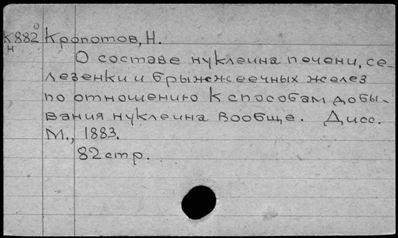 К882 Кропотов, Н.
н
О составе нуклеина печени, се-
лезенки и брыжжеечных желез
по отношению к способам добы-
вания нуклеина вообще. Дисс.
М., 1883.
82 стр.